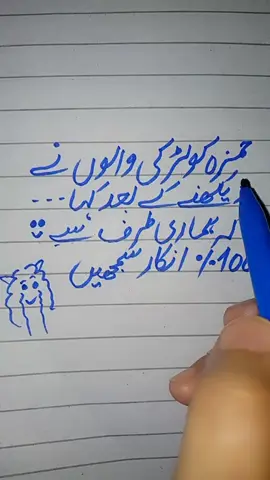 حمزہ کو لڑکی والوں نے
دیکھنے کے بعد کہا...
ہماری طرف سے
100٪ انکار سمجھیں